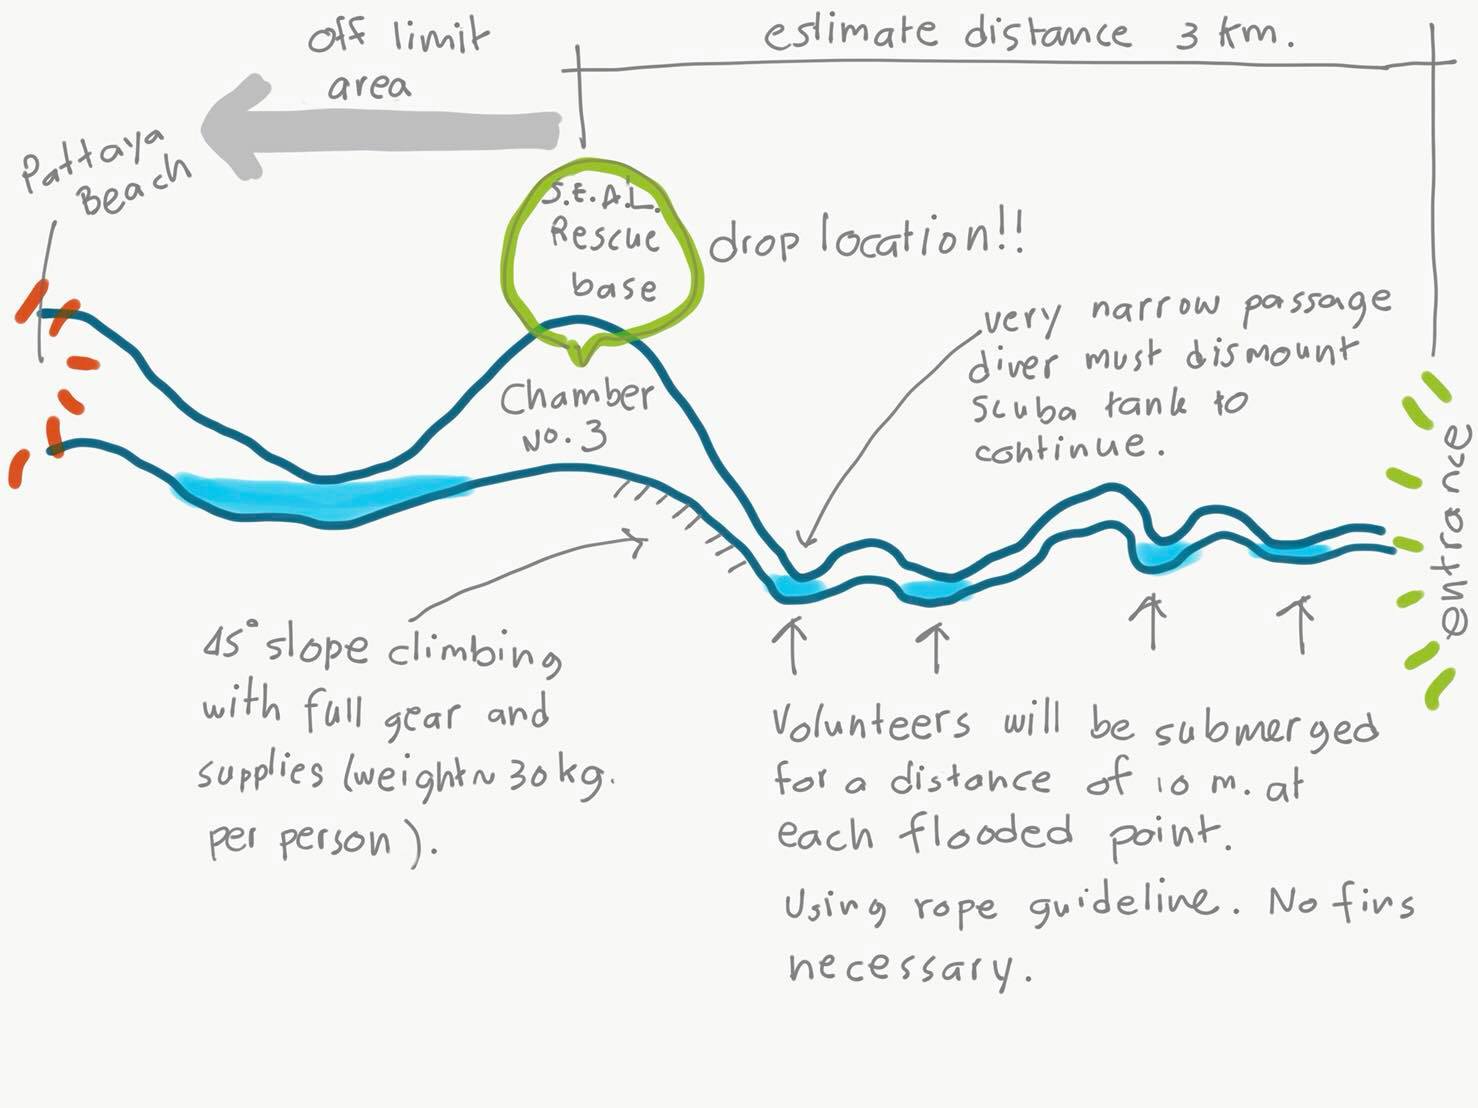 off limit
area
estimate distance 3 km.
Pattaya
Beach
S.E.A.L.
Rescue
base
drop location!!
very narrow passage
diver must dismount
scuba tank to
continue.
Chamber
No. 3
entrance
45° slope climbing
with full gear and
supplies (weight ~ 30 kg.
per person).
Volunteers will be submerged
for a distance of 10 m. at
each flooded point.
Using rope guideline. No fins
necessary.